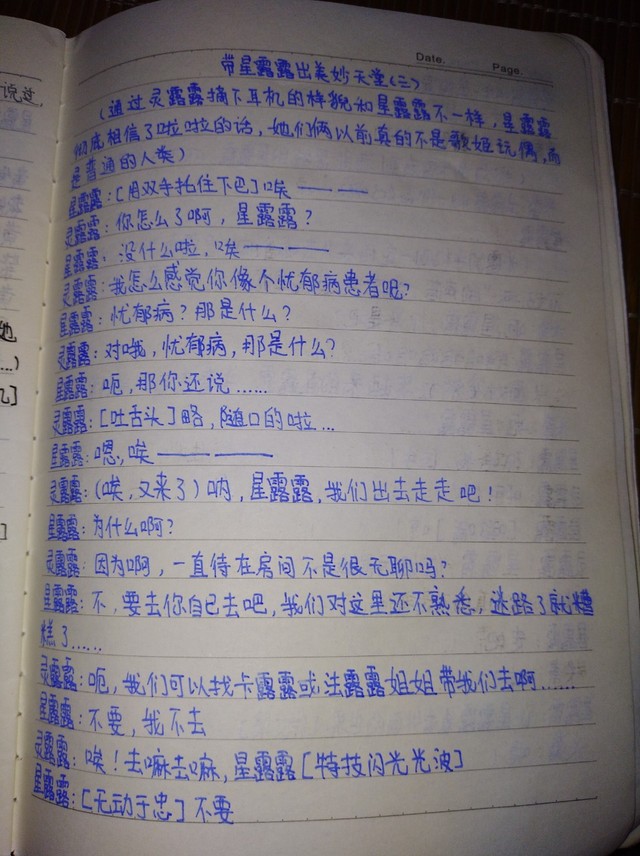 说过,
Date.
Page.
带星露露出美妙天堂(二)
(通过灵露露摘下耳机的样貌和星露露不一样,星露露
彻底相信了啦啦的话,她们俩以前真的不是歌姬玩偶,而
是普通的人类)
星露露:[用双手托住下巴]唉————
灵露露:你怎么了啊,星露露?
星露露:没什么啦,唉————
灵露露:我怎么感觉你像个忧郁病患者呢?
星露露:忧郁病?那是什么?
灵露露:对哦,忧郁病,那是什么?
星露露:呃,那你还说……
灵露露:[吐舌头]略,随口的啦...
星露露:嗯,唉————
灵露露:(唉,又来了)呐,星露露,我们出去走走吧!
星露露:为什么啊?
灵露露:因为啊,一直待在房间不是很无聊吗?
星露露:不,要去你自己去吧,我们对这里还不熟悉,迷路了就糟
糕了……
灵露露:呃,我们可以找卡露露或法露露姐姐带我们去啊……
星露露:不要,我不去
灵露露:唉!去嘛去嘛,星露露[特技闪光光波]
星露露:[无动于忠]不要